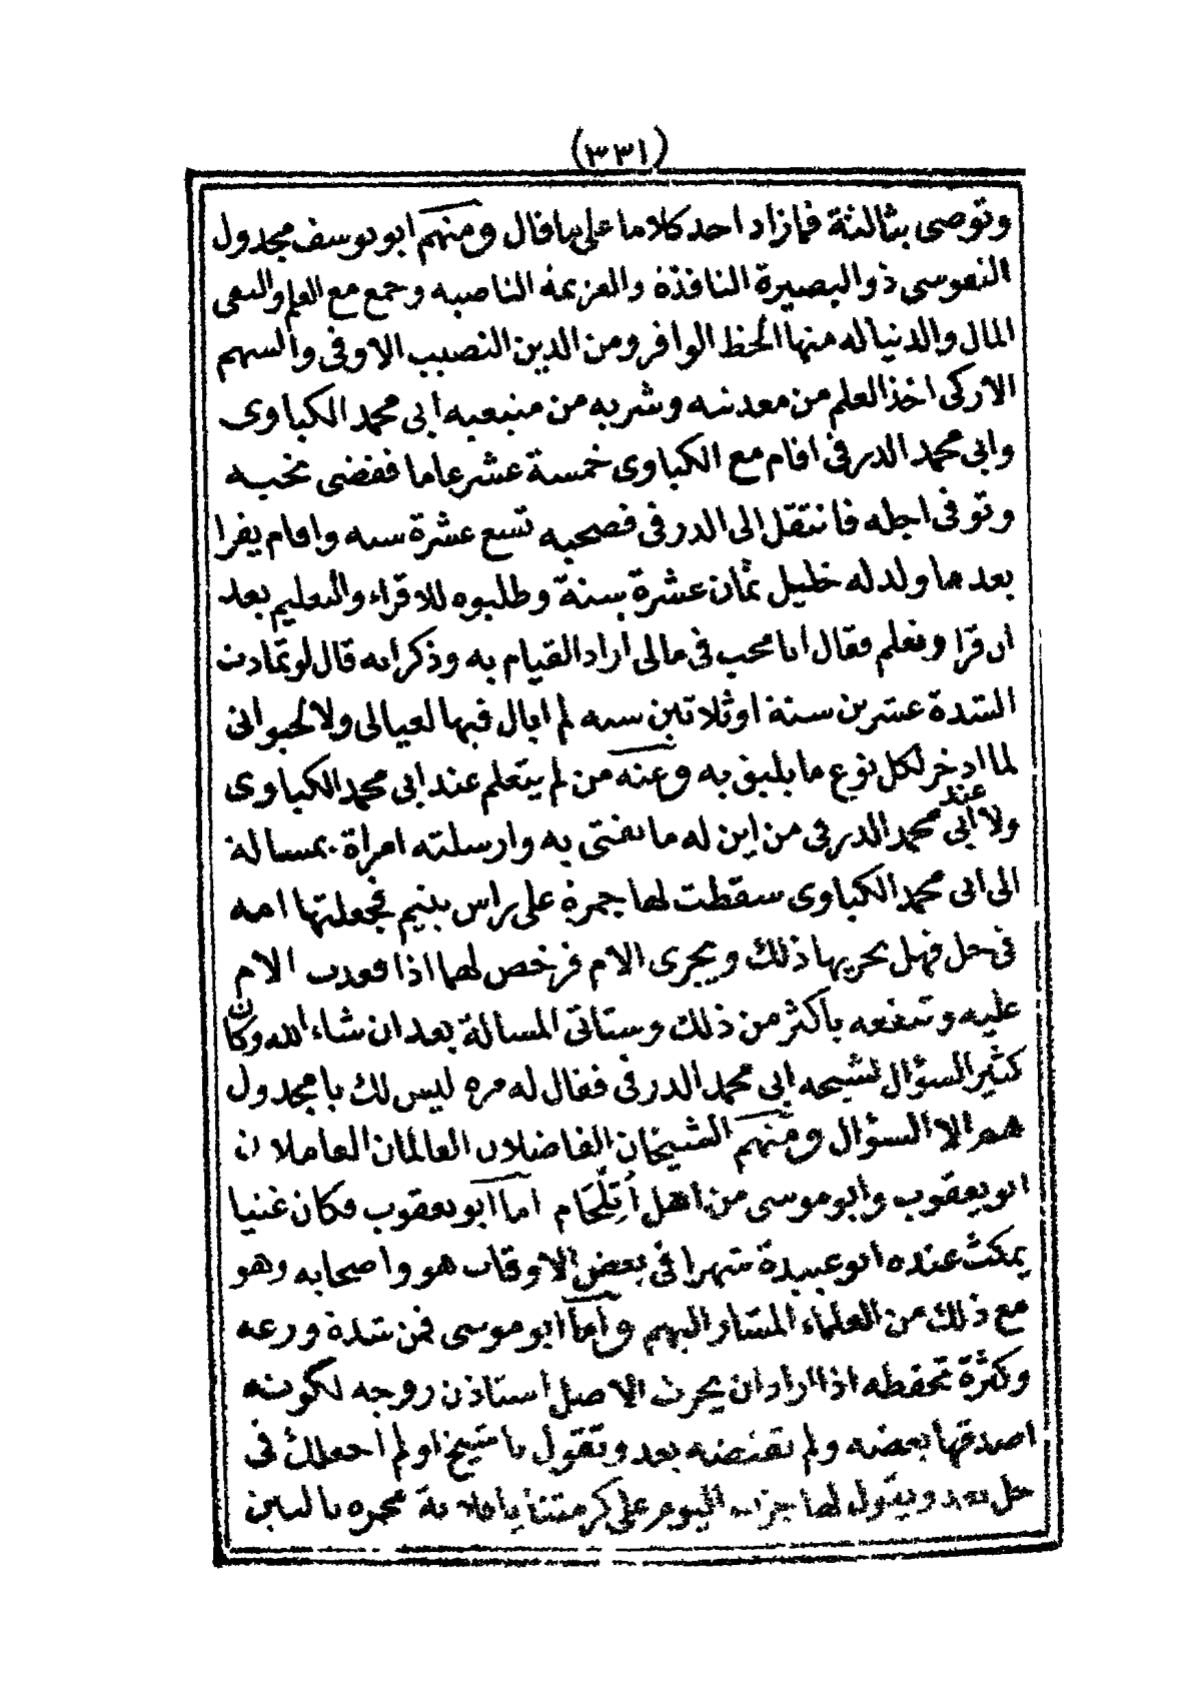 (٣٣١)
وتوصى بثالثة فمازاد احد كلاما على ما قال ومنهم ابو يوسف مجدول
النفوسى ذو البصيرة النافذة والعزيمة الناصبه وجمع مع العلم والتقى
المال والدنيا له منها الحظ الوافر ومن الدين النصيب الاوفى والسهم
الازكى اخذ العلم من معدنه وشربه من منبعيه ابى محمد الكباوى
وابى محمد الدرفى اقام مع الكباوى خمسة عشر عاما فقضى نحبه
وتوفى اجله فانتقل الى الدرفى فصحبه تسع عشرة سنه واقام يقرا
بعدها ولد له خليل ثمان عشرة سنة وطلبوه للاقراء والتعليم بعد
ان قرا وتعلم فقال انا محب فى مالى اراد القيام به وذكر انه قال لو تمادت
الشدة عشرين سنة او ثلاثين سنه لم ابال فيها لعيالى ولا لحيوانى
لما ادخر لكل نوع ما يليق به وعنه من لم يتعلم عند ابى محمد الكباوى
ولا عند ابى محمد الدرفى من اين له ما يفتى به وارسلته امراة بمسالة
الى ابى محمد الكباوى سقطت لها جمرة على راس يتيم فجعلتها امه
فى حل فهل يجزيها ذلك ويجزى الام فرخص لهما اذا قعدت الام
عليه وتنفعه باكثر من ذلك وستاتى المسالة بعد ان شاء الله وكان
كثير السؤال لشيخه ابى محمد الدرفى فقال له مره ليس لك يا مجدول
الا السؤال ومنهم الشيخان الفاضلان العالمان العاملان
ابو يعقوب وابو موسى من اهل اُتِلِّحَام اما ابو يعقوب فكان غنيا
يمكث عنده ابو عبيدة شهرا فى بعض الاوقات هو واصحابه وهو
مع ذلك من العلماء المشار اليهم واما ابو موسى فمن شدة ورعه
وكثرة تحفظه اذا اراد ان يحرث الاصل استاذن زوجه لكونه
اصدقها بعضه ولم تقبضه بعد وتقول يا شيخ اولم اجعلك فى
حل بعد ويقول لها اليوم على كرمتنا